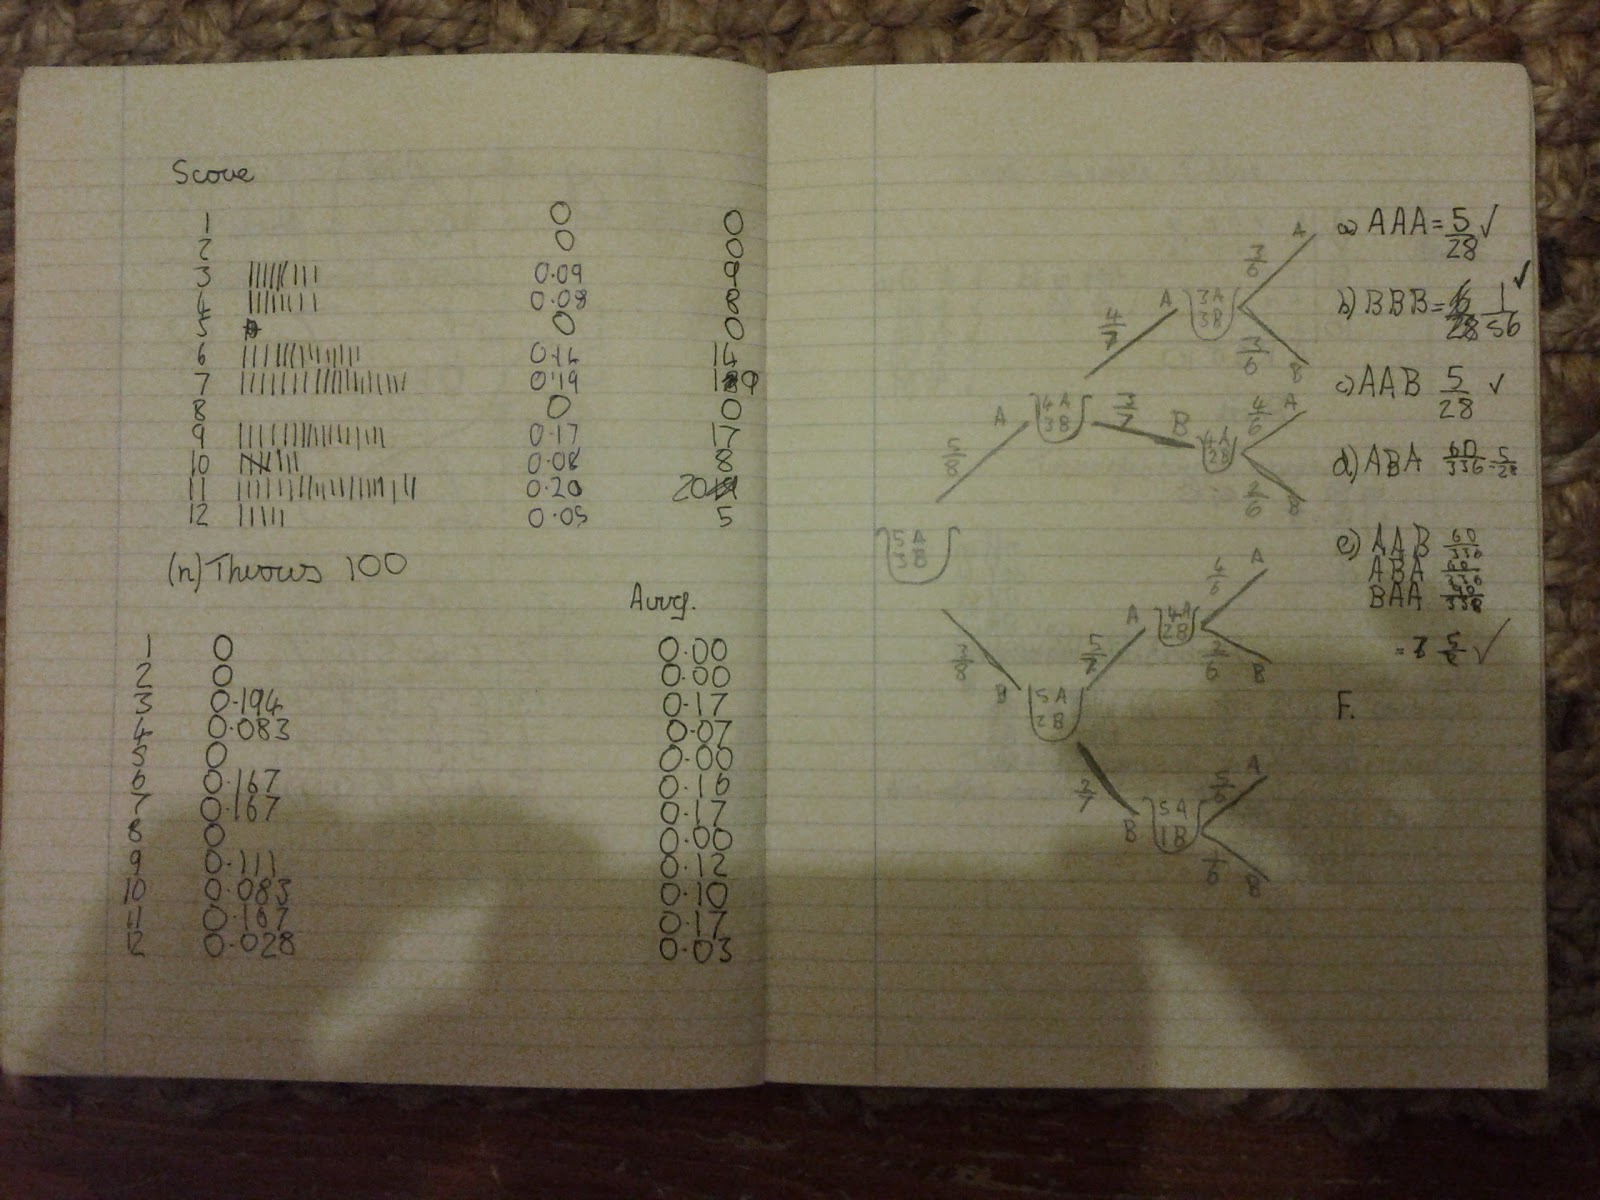 Score
1 0 0
2 0 0
3 0.09 9
4 0.08 8
5 0 0
6 0.14 14
7 0.19 19
8 0 0
9 0.17 17
10 0.08 8
11 0.20 20
12 0.05 5
(n) Throws 100
Avrg.
1 0 0.00
2 0 0.00
3 0.194 0.17
4 0.083 0.07
5 0 0.00
6 0.167 0.16
7 0.167 0.17
8 0 0.00
9 0.111 0.12
10 0.083 0.10
11 0.167 0.17
12 0.028 0.03
A
3/6
A 3A
3B
4/7
3/6
B
A 4A
3B
3/7
B 4A
2B
4/6 A
5/8
2/6 B
5A
3B
4/6 A
A 4A
2B
3/8
5/7
2/6 B
B 5A
2B
5/6 A
2/7
B 5A
1B
1/6 B
a) AAA = 5/28 ✓
b) BBB = 1/56 ✓
c) AAB 5/28 ✓
d) ABA 60/336 = 5/28
e) AAB 60/336
ABA
BAA
= ✓
F.